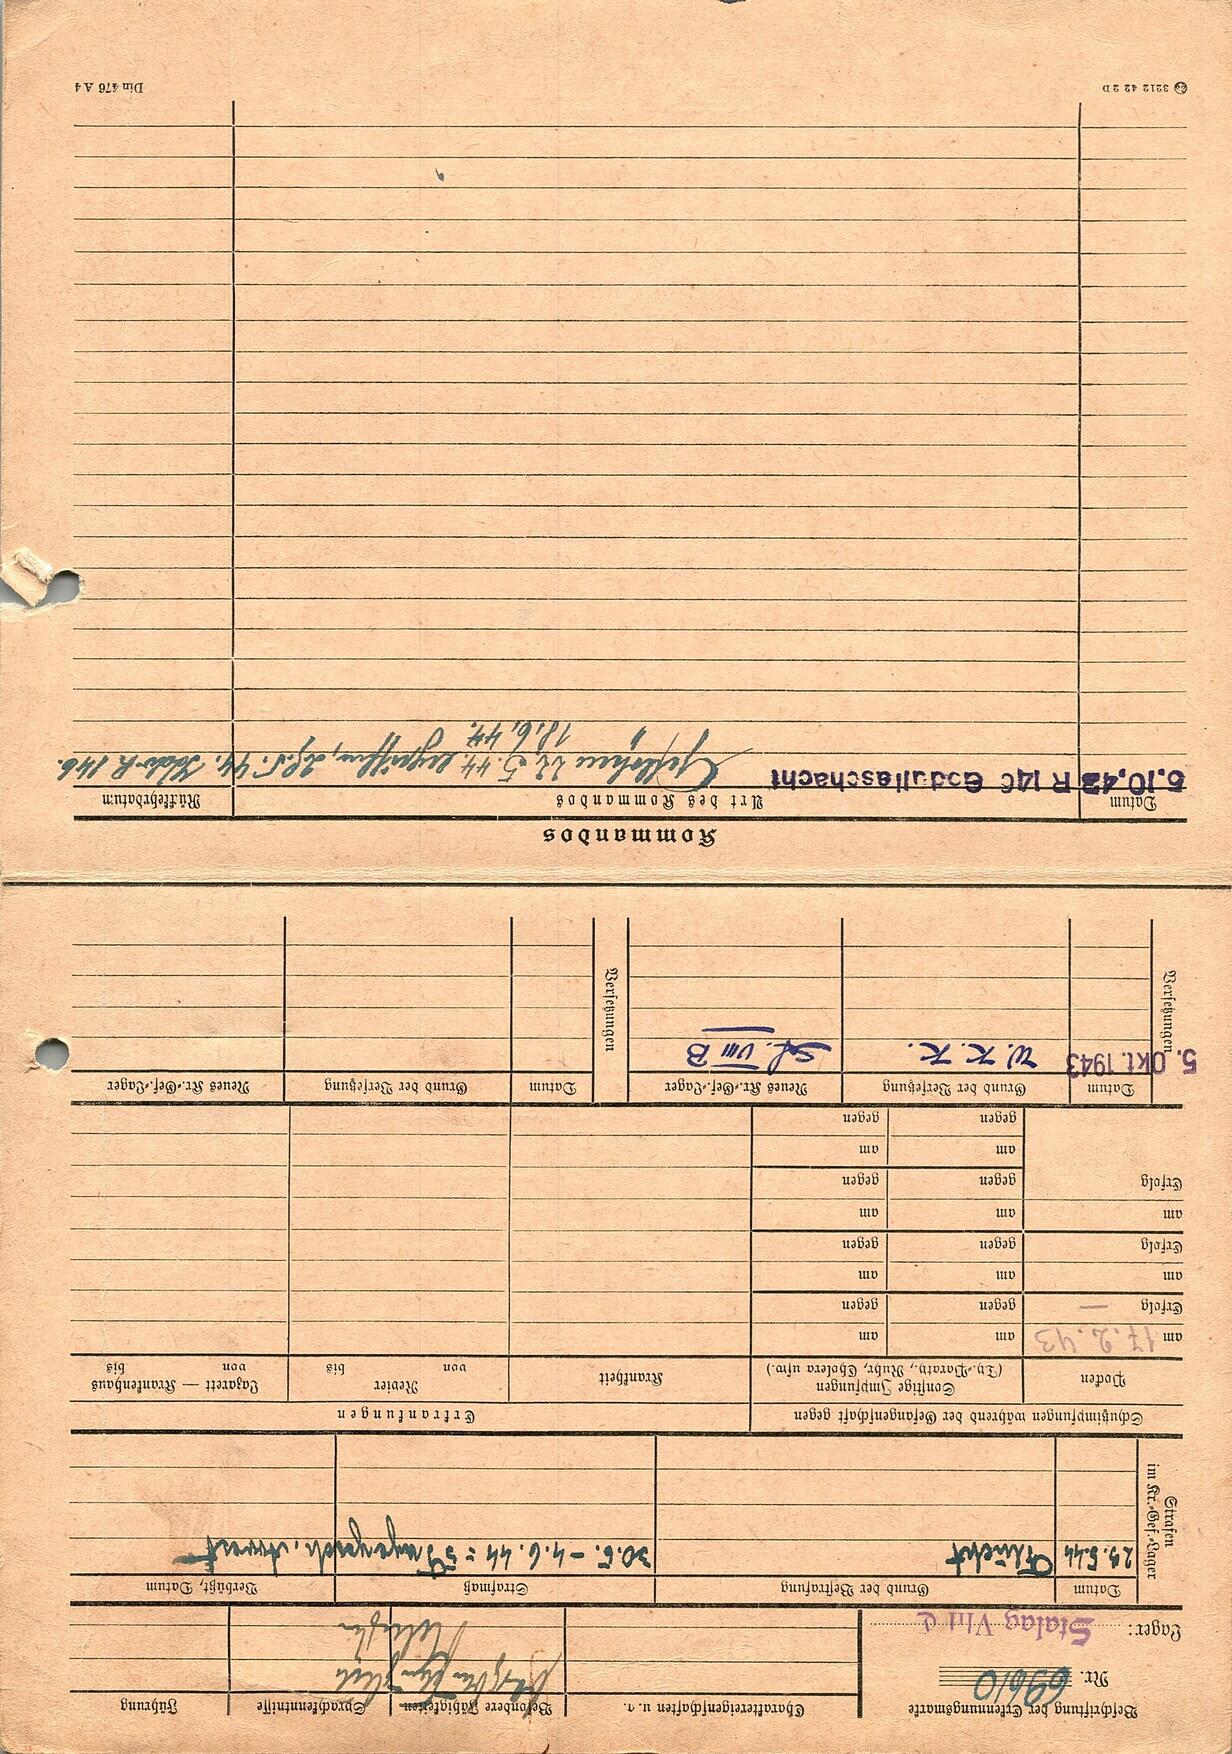 Beschriftung der Erkennungsmarke
Nr. 69610
Lager: Stalag VIII C
Charaktereigenschaften u. a.
Besondere Fähigkeiten
Sprachkenntnisse
Führung
Strafen im Kr.-Gef.-Lager
Datum
Grund der Bestrafung
Strafmaß
Verbüßt, Datum
29.5.44
Flucht
30.5. - 4.6.44 = 5 Tage gesch. Arrest
Schutzimpfungen während der Gefangenschaft gegen
Erkrankungen
Pocken
Sonstige Impfungen
(Ty.-Paraty., Ruhr, Cholera usw.)
Krankheit
Revier
von bis
Lazarett — Krankenhaus
von bis
am 17.2.43 am am
Erfolg — gegen gegen
am am am
Erfolg gegen gegen
am am am
Erfolg gegen gegen
am am
gegen gegen
Versetzungen
Datum
Grund der Versetzung
Neues Kr.-Gef.-Lager
Versetzungen
Datum
Grund der Versetzung
Neues Kr.-Gef.-Lager
5. Okt. 1943
W. K. K.
St. VIII B
Kommandos
Datum
Art des Kommandos
Rückkehrdatum
5.10.43 R 146 Godullaschacht
Geflohen 22.5.44. ergriffen, 29.5.44. R 146.
" 18.6.44.
3212 42 2 D
Din 476 A 4